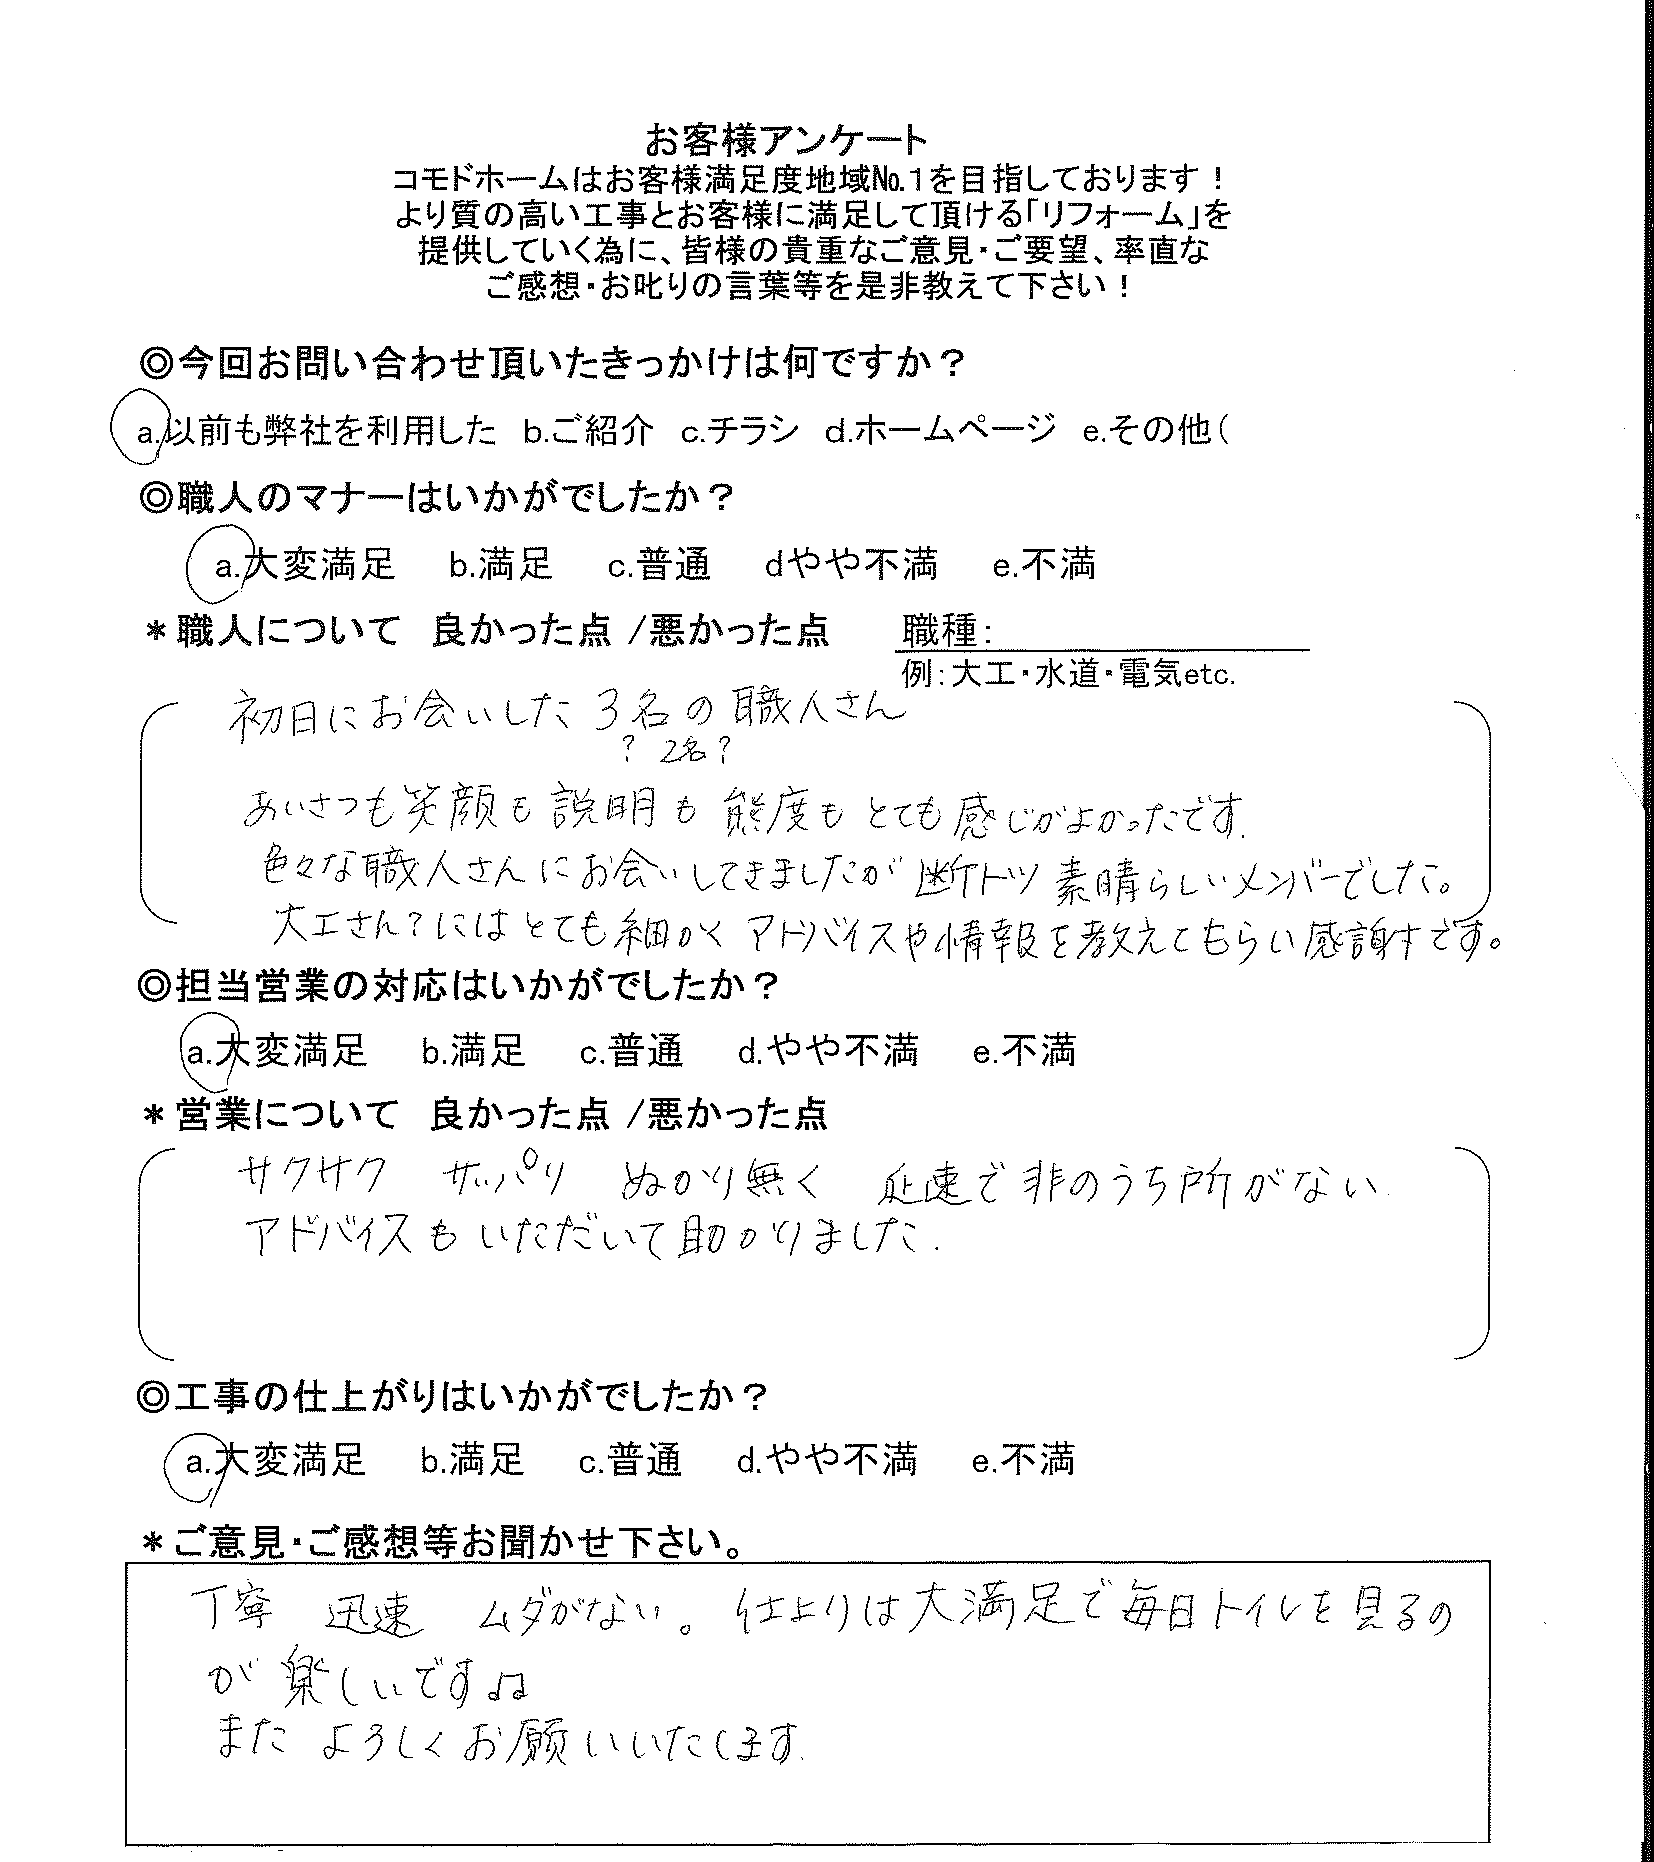 お客様アンケート
コモドホームはお客様満足度地域№1を目指しております！
より質の高い工事とお客様に満足して頂ける「リフォーム」を
提供していく為に、皆様の貴重なご意見・ご要望、率直な
ご感想・お叱りの言葉等を是非教えて下さい！
◎今回お問い合わせ頂いたきっかけは何ですか？
a.以前も弊社を利用した b.ご紹介 c.チラシ d.ホームページ e.その他(
◎職人のマナーはいかがでしたか？
a.大変満足 b.満足 c.普通 dやや不満 e.不満
＊職人について 良かった点 /悪かった点 職種：
例：大工・水道・電気etc.
初日にお会いした3名の職人さん
？ 2名？
あいさつも笑顔も説明も態度もとても感じがよかったです.
色々な職人さんにお会いしてきましたが断トツ素晴らしいメンバーでした。
大工さん？にはとても細かくアドバイスや情報を教えてもらい感謝です。
◎担当営業の対応はいかがでしたか？
a.大変満足 b.満足 c.普通 d.やや不満 e.不満
＊営業について 良かった点 /悪かった点
サクサク サッパリ ぬかり無く 迅速で非のうち所がない.
アドバイスもいただいて助かりました.
◎工事の仕上がりはいかがでしたか？
a.大変満足 b.満足 c.普通 d.やや不満 e.不満
＊ご意見・ご感想等お聞かせ下さい。
丁寧 迅速 ムダがない。仕上りは大満足で毎日トイレを見るの
が楽しいです♫
またよろしくお願いいたします.